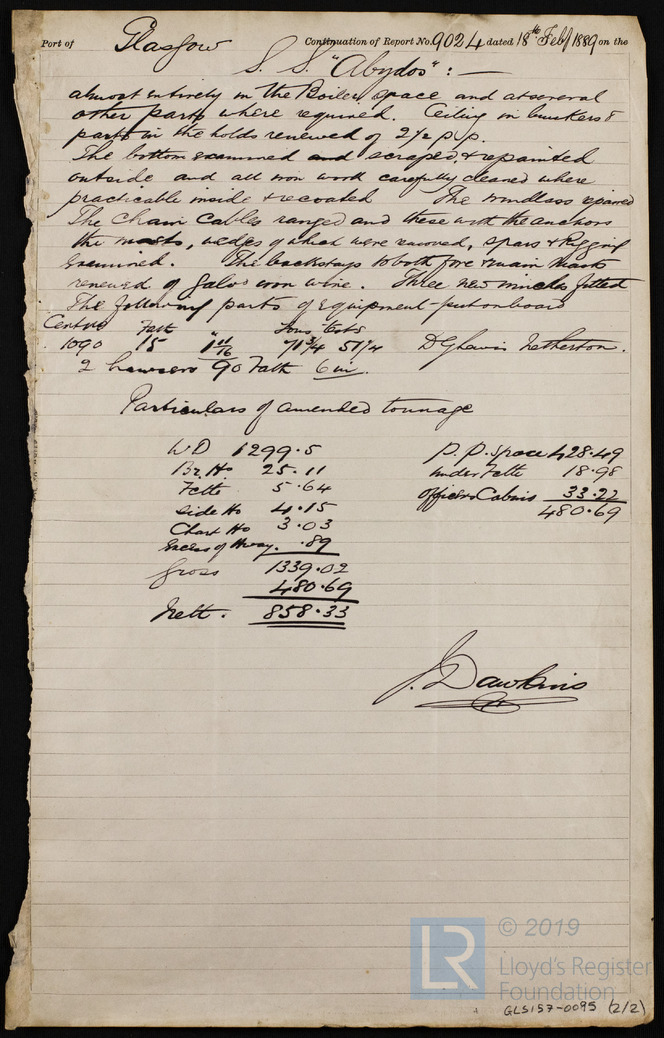 Port of Glasgow Continuation of Report No. 9024 dated 18th Feby 1889 on the
S. S. "Abydos" : —
almost entirely in the Boiler space and at several
other parts where required. Ceiling in bunkers &
parts in the holds renewed of 2½ p.p.
The bottom examined and scraped & repainted
outside and all iron work carefully cleaned where
practicable inside & recoated The windlass repaired
The Chain Cables ranged and these with the anchors
the masts, wedges of which were removed, spars & Rigging
examined. The backstays to both fore & main Masts
renewed of Galvd iron wire. Three new winches fitted
The following parts of Equipment put on board
Certive Fath " Tons Cwts
1090 15 1 11/16 71¾ 51¼ Netherton.
2 hawsers 90 Fath 6 in.
Particulars of amended tonnage
U D 1299.5 P. P. Space 428.49
Br. Ho 25.11 under 18.98
5.64 Officers Cabins 33.22
Side Ho 4.15 480.69
Chart Ho 3.03
Excess of Hway. .89
Gross 1339.02
480.69
Nett. 858.33
J. Dawkins
LR © 2019
Lloyd's Register
Foundation
GLS157-0095 (2/2)